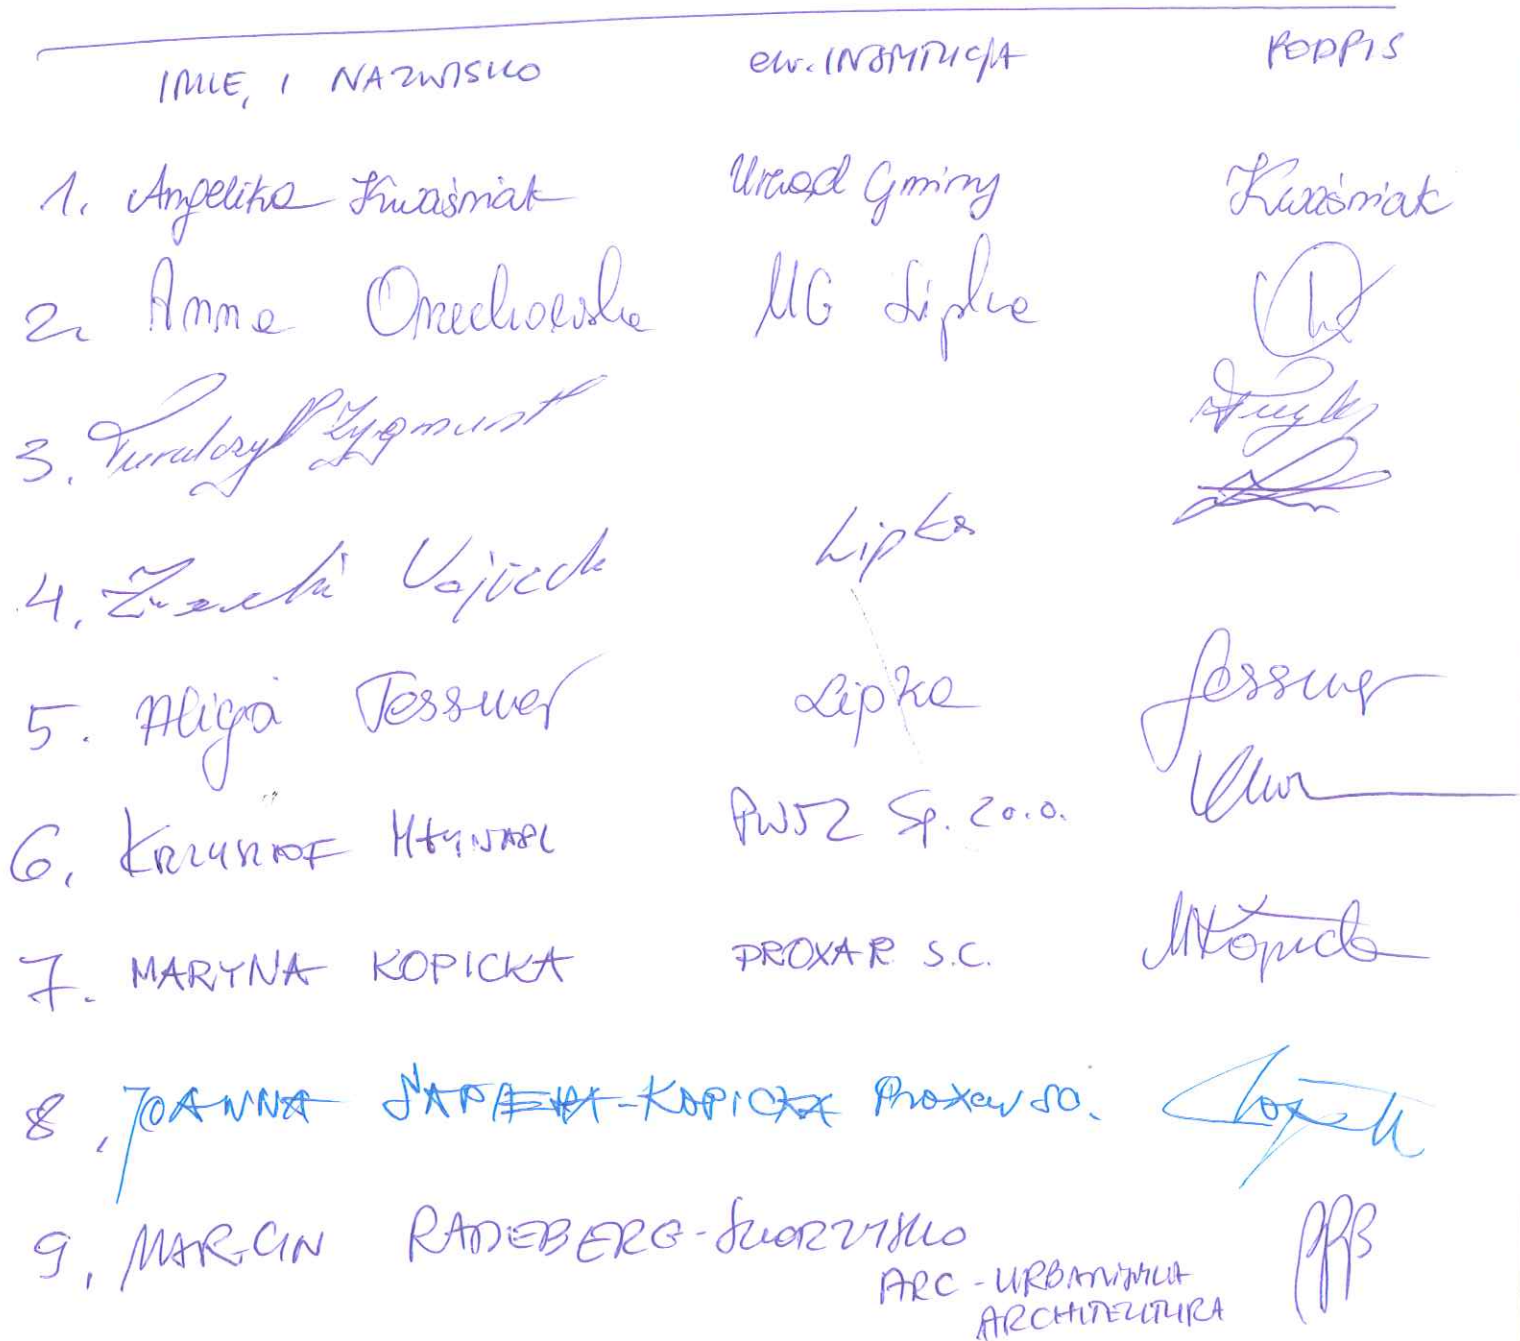 IMIĘ I NAZWISKO ew. INSTYTUCJA PODPIS
1. Angelika Kwaśniak Urząd Gminy Kwaśniak
2. Anna Orzechowska UG Lipka
3. Zygmunt
4. Wojciech Lipka
5. Alicja Tessmer Lipka Tessmer
6. KRZYSZTOF MŁYNARZ Sp. z o.o.
7. MARYNA KOPICKA PROXAR S.C. MKopicka
8. JOANNA SAPIEHA-KOPICKA Proxar s.c.
9. MARCIN RADEBERG-SKORZYSKO
ARC - URBANISTYKA
ARCHITEKTURA